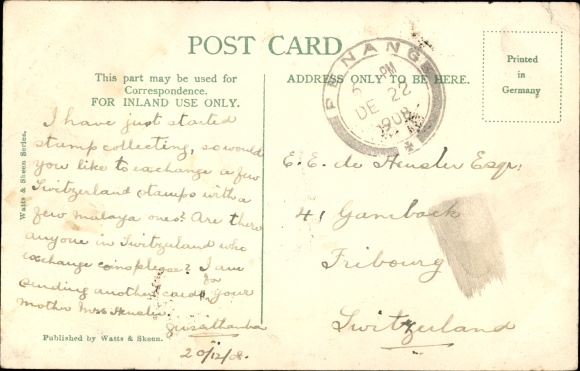 POST CARD
This part may be used for
Correspondence.
FOR INLAND USE ONLY.
ADDRESS ONLY TO BE HERE.
Printed
in
Germany
PENANG
PM
DE 22
1908
I have just started
stamp collecting, so would
you like to exchange a few
Switzerland stamps with a
few malaya ones? Are there
anyone in Switzerland who
exchange coins please? I am
sending another card for your
Mother Mrs
20/12/08.
E. E. de Heusler Esqr:
41 Gambach
Fribourg
Switzerland
Watts & Skeen Series.
Published by Watts & Skeen.